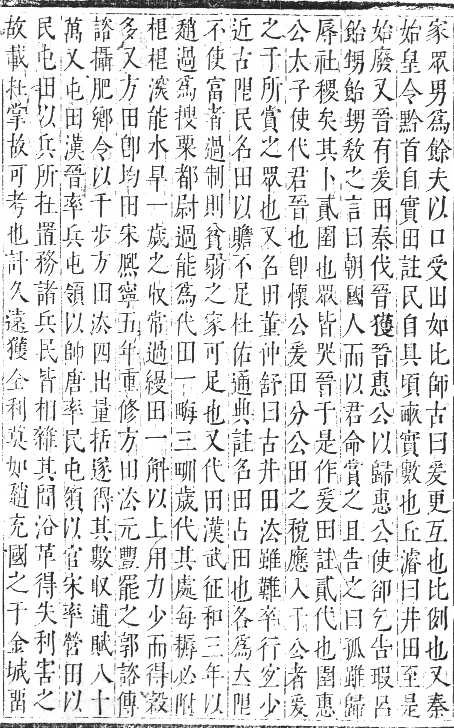 家眾男爲餘夫以口受田如比師古曰爰更互也比例也又秦
始皇令黔首自實田註民自具頃畝實數也丘濬曰井田至是
始廢又晉有爰田秦伐晉獲晉惠公以歸惠公使卻乞告瑕呂
飴甥飴甥敎之言曰朝國人而以君命賞之且告之曰孤雖歸
辱社稷矣其卜貳圉也眾皆哭晉于是作爰田註貳代也圉惠
公太子使代君晉也卽懷公爰田分公田之稅應入于公者爰
之于所賞之眾也又名田董仲舒曰古井田法雖難卒行宜少
近古限民名田以贍不足杜佑通典註名田占田也各爲立限
不使富者過制則貧弱之家可足也又代田漢武征和三年以
趙過爲搜粟都尉過能爲代田一畮三甽歲代其處每耨必附
根根深能水旱一歲之收常過縵田一斛以上用力少而得穀
多又方田卽均田宋熈寧五年重修方田法元豐罷之郭諮傳
諮攝肥鄉令以千步方田法四出量括遂得其數收逋賦八十
萬又屯田漢晉率兵屯領以師唐率民屯領以官宋率營田以
民屯田以兵所在置務諸兵民皆相雜其閒沿革得失利害之
故載在掌故可考也計久遠獲全利莫如趙充國之于金城畱